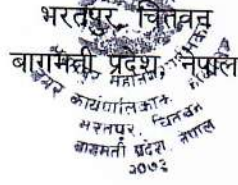 भरतपुर, चितवन
बागमती प्रदेश, नेपाल
कार्यपालिकाको
भरतपुर, चितवन
बागमती प्रदेश, नेपाल
२०७३